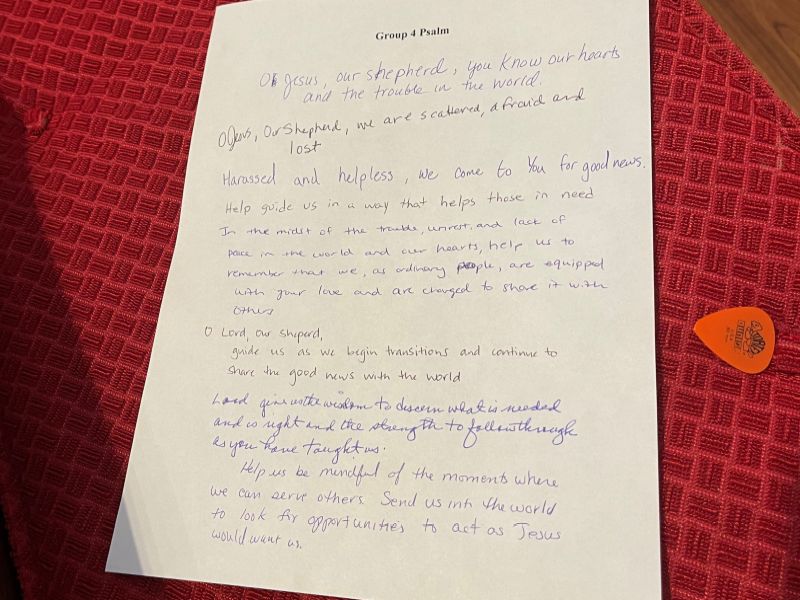 Group 4 Psalm
Oh Jesus, our shepherd, you know our hearts
and the trouble in the world.
O Jesus, Our Shepherd, we are scattered, afraid and
lost
Harassed and helpless, we come to You for good news.
Help guide us in a way that helps those in need
In the midst of the trouble, unrest, and lack of
peace in the world and our hearts, help us to
remember that we, as ordinary people, are equipped
with your love and are charged to share it with
others
O Lord, our sheperd,
guide us as we begin transitions and continue to
share the good news with the world
Lord give us the wisdom to discern what is needed
and is right and the strength to follow through
as you have taught us.
Help us be mindful of the moments where
we can serve others. Send us into the world
to look for opportunities to act as Jesus
would want us.